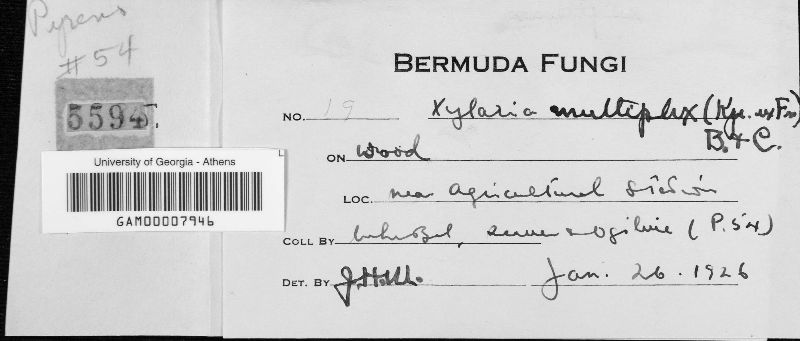 Pyreno
#54
5594.
University of Georgia - Athens
GAM00007946
BERMUDA FUNGI
NO. 19 Xylaria multiplex (Kze. ex Fr)
B. & C.
ON wood
LOC. near Agricultural Station
COLL BY Whetzel, & Ogilvie (P. 54)
DET. BY J.H.M. Jan. 26. 1926